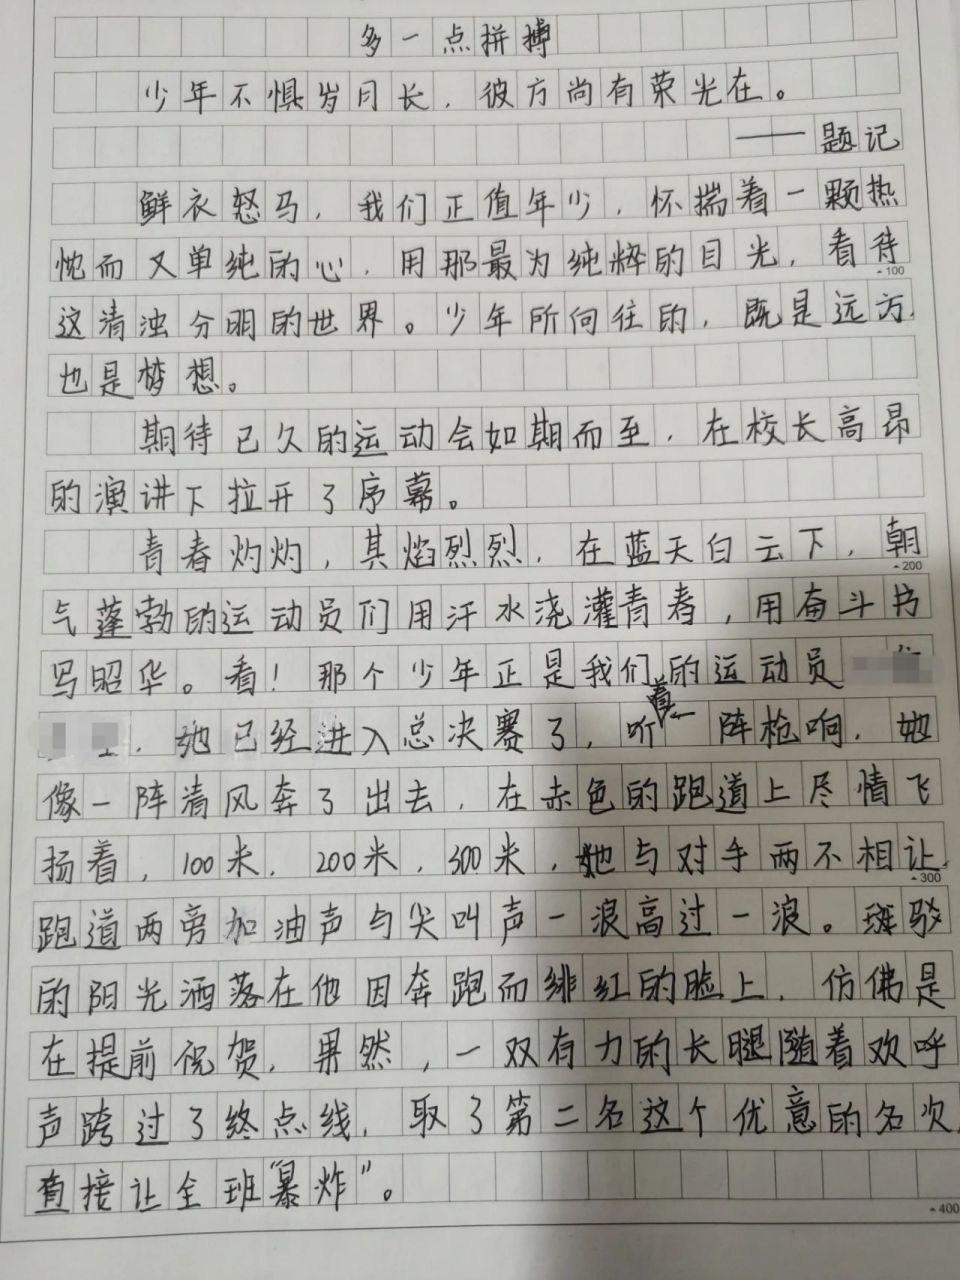 多一点拼搏
少年不惧岁月长，彼方尚有荣光在。
——题记
鲜衣怒马，我们正值年少，怀揣着一颗热
忱而又单纯的心，用那最为纯粹的目光，看待
100
这清浊分明的世界。少年所向往的，既是远方，
也是梦想。
期待已久的运动会如期而至，在校长高昂
的演讲下拉开了序幕。
青春灼灼，其焰烈烈，在蓝天白云下，朝
200
气蓬勃的运动员们用汗水浇灌青春，用奋斗书
写昭华。看！那个少年正是我们的运动员
，她已经进入总决赛了，听着一阵枪响，她
像一阵清风奔了出去，在赤色的跑道上尽情飞
扬着，100米，200米，300米，她与对手两不相让，
300
跑道两旁加油声与尖叫声一浪高过一浪。斑驳
的阳光洒落在他因奔跑而绯红的脸上，仿佛是
在提前祝贺，果然，一双有力的长腿随着欢呼
声跨过了终点线，取了第二名这个优意的名次，
直接让全班“暴炸”。
400